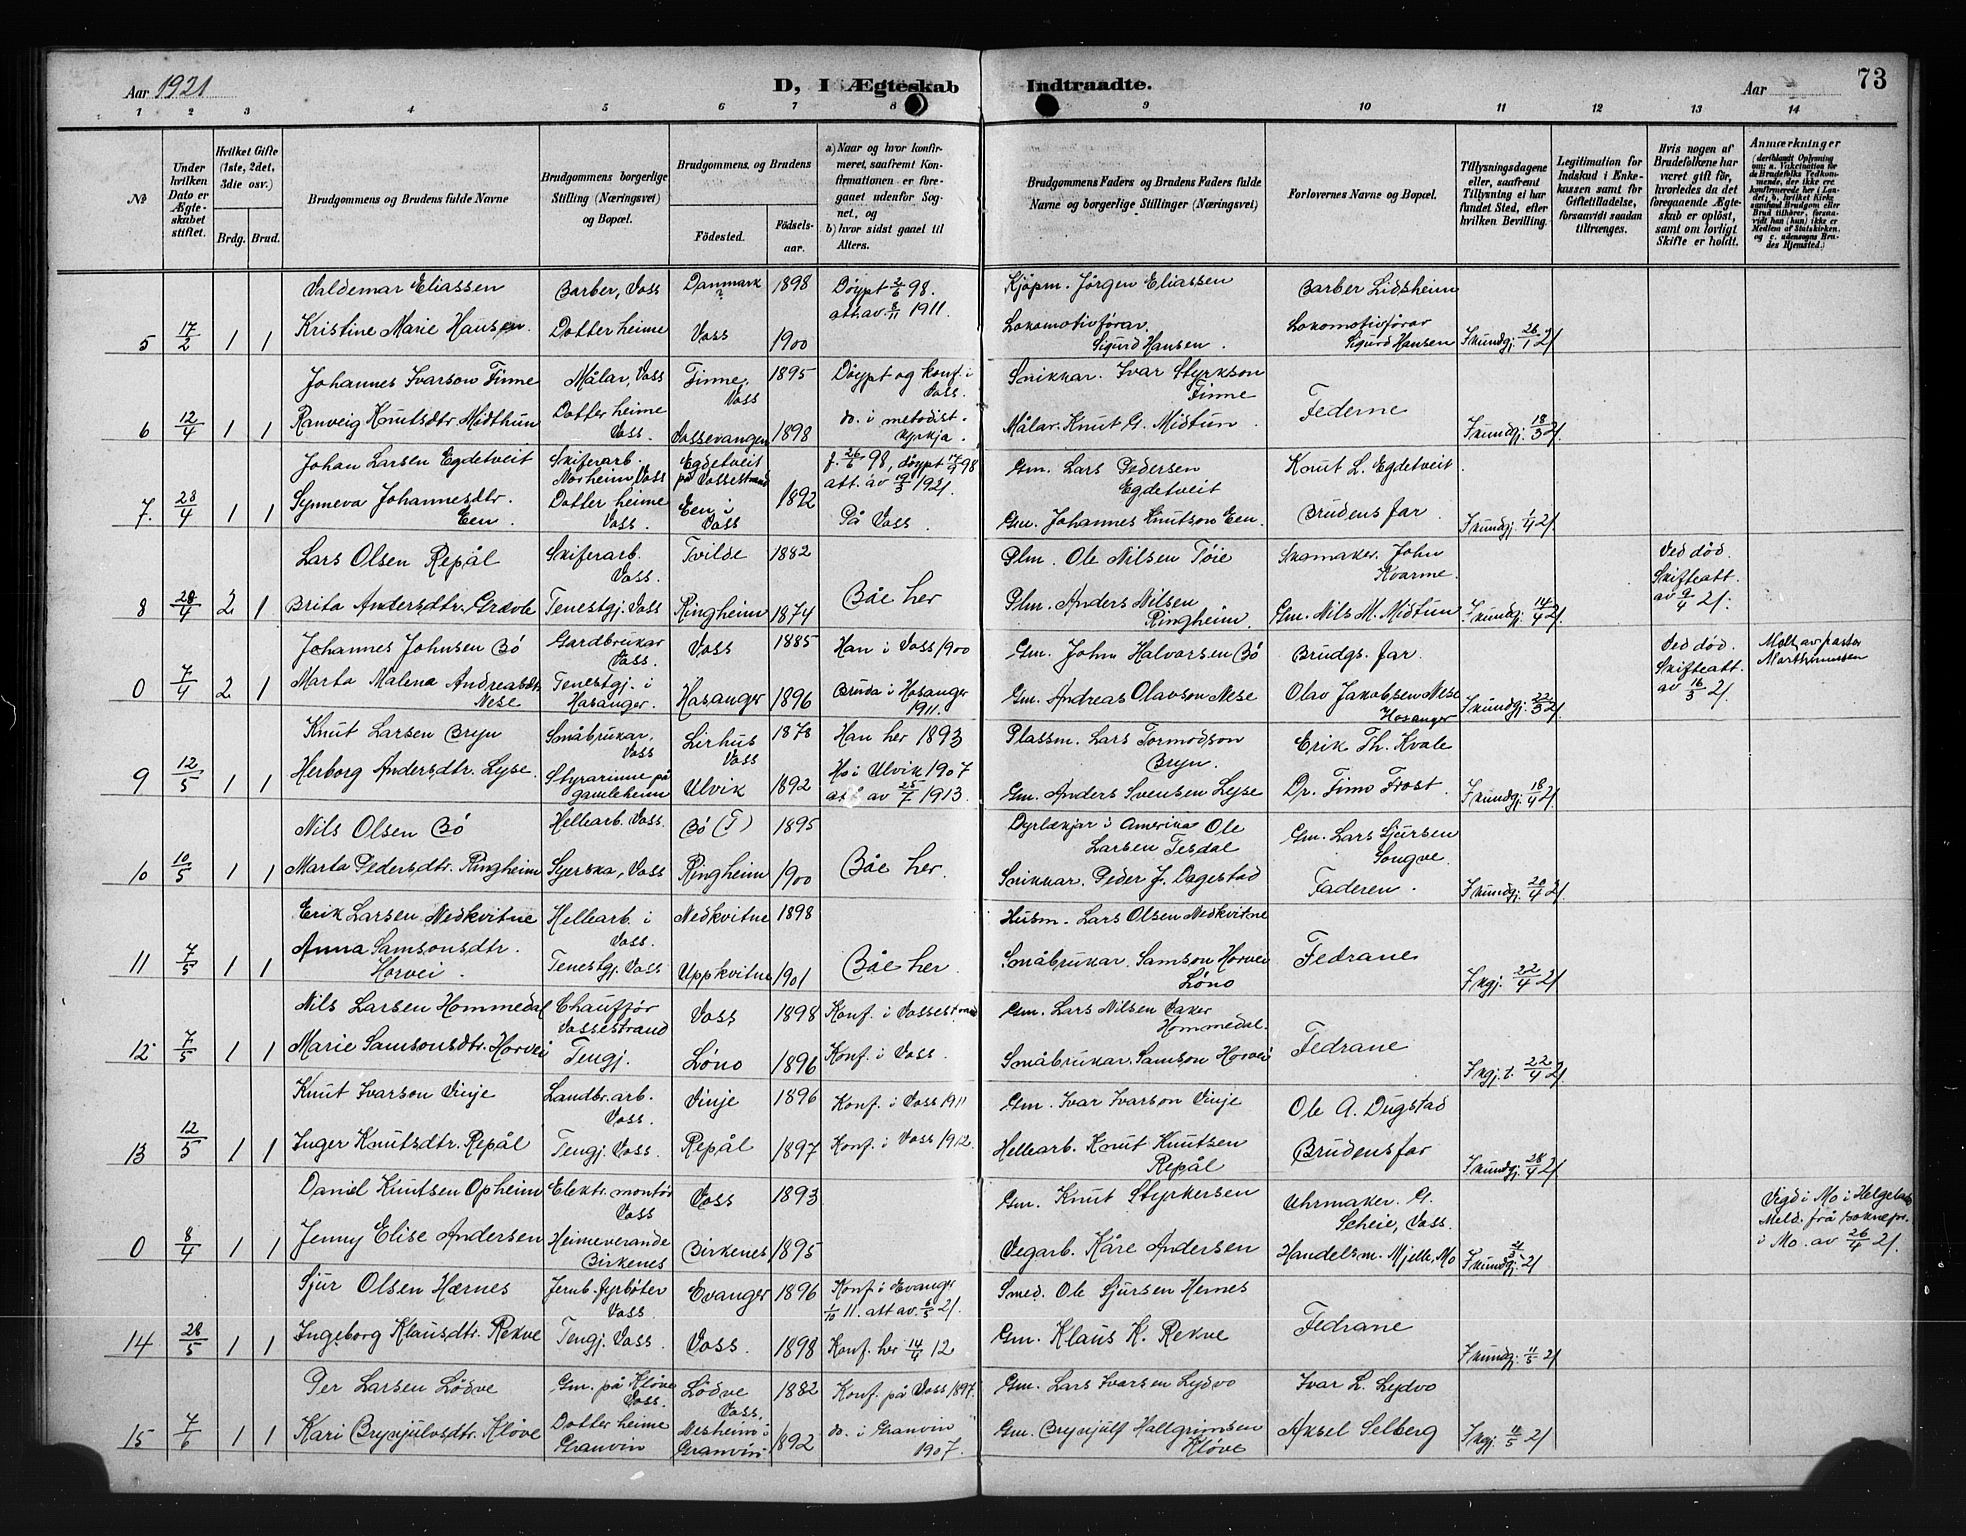 Aar 1921
D, I Ægteskab Indtraadte.
Aar
73
1 2 3 4 5 6 7 8 9 10 11 12 13 14
№
Under hvilken Dato er Ægteskabet stiftet.
Hvilket Gifte (1ste, 2det, 3die osv.)
Brdg. Brud.
Brudgommens og Brudens fulde Navne
Brudgommens borgerlige Stilling (Næringsvei) og Bopæl.
Brudgommens og Brudens
Fødested.
Fødselsaar.
a) Naar og hvor konfirmeret, saafremt Konfirmationen er foregaaet udenfor Sognet, og
b) hvor sidst gaaet til Alters.
Brudgommens Faders og Brudens Faders fulde Navne og borgerlige Stillinger (Næringsvei)
Forlovernes Navne og Bopæl.
Tillysningsdagene eller, saafremt Tillysning ei har fundet Sted, efter hvilken Bevilling.
Legitimation for Indskud i Enkekassen samt for Giftetilladelse, forsaavidt saadan tiltrænges.
Hvis nogen af Brudefolkene har været gift før, hvorledes da det foregaaende Ægteskab er opløst, samt om lovligt Skifte er holdt.
Anmærkninger
Valdemar Eliassen Barber, Voss Danmark 1898 Døypt 2/6 98. att. av 8/11 1911. Kjøpm. Jørgen Eliassen Barber Lidsheim
5 17/2 1 1 Kristine Marie Hansen. Dotter heime Voss 1900 Lokomotivførar Sigurd Hansen. Lokomotivførar Sigurd Hansen Ikundgj. 26/1 21
Johannes Ivarson Finne Målar, Voss Finne, Voss 1895 Døypt og konf. i Voss. Snikkar. Ivar Styrkson Finne
6 12/4 1 1 Ranveig Knutsdtr Midthun Dotter heime Voss. Vossevangen 1898 do. i metodistkyrkja. Målar. Knut G. Midtun Federne Ikundgj. 18/3 21.
Johan Larsen Egdetveit Skiferarb. Norheim, Voss Egdetveit på Vossestrand f. 26/6 98, døypt 17/7 98 att. av 19/3 1921. Gm. Lars Pedersen Egdetveit Knut L. Egdetveit.
7. 28/4 1 1 Synneva Johannesdtr. Een. Dotter heime Voss. Een i Voss 1892 På Voss. Gm. Johannes Knutson Een. Brudens far. Ikundgj. 1/4 21
Lars Olsen Repål Skiferarb. Voss. Tvilde 1882 Plm. Ole Nilsen Tøie Skomaker. John Kvarme. Ved død. Skifteatt. av 9/4 21.
8 28/4 2 1 Brita Andersdtr. Grovle Tenestgj. Voss Ringheim 1874 Båe her Plm. Anders Nilsen Ringheim. Gm. Nils M. Midtun Ikundgj. 14/4 21
Johannes Johnsen Bø Gardbrukar Voss. Voss 1885 Han i Voss 1900 Gm. John Halvorsen Bø Brudgs. far. Ved død. Skifteatt. av 16/3 21.
0 7/4 2 1 Marta Malena Andreasdtr Nese Tenestgj. i Hosanger. Hosanger 1896 Bruda i Hosanger 1911. Gm. Andreas Olavson Nese Olav Jakobsen Nese Hosanger Ikundgj. 22/3 21.
Knut Larsen Bryn Småbrukar. Voss Lirhus Voss 1878 Han her 1893 Plassm. Lars Tormodson Bryn. Erik Th. Kvale
9 12/5 1 1 Herborg Andersdtr. Lyse. Styrarinne på gamleheim Ulvik 1892 Ho i Ulvik 1907 att av 25/7 1913. Gm. Anders Svensen Lyse Dr. Finn Frost. Ikundgj. 18/4 21
Nils Olsen Bø Hellearb. Voss. Bø (T) 1895 Dyrlækjar i Amerika Ole Larsen Tesdal Gm. Lars Sjursen Gougve.
10 10/5 1 1 Marta Pedersdtr. Ringheim Syerska, Voss Ringheim 1900 Båe her. Snikkar. Peder J. Dagestad Faderen. Ikundgj. 20/4 21
Erik Larsen Nedkvitne Hellearb. i Voss. Nedkvitne 1898 Husm. Lars Olsen Nedkvitne
11 7/5 1 1 Anna Samsonsdtr. Horvei. Tenestgj. Voss Uppkvitne 1901 Båe her. Småbrukar. Samson Horvei Løno Fedrane Ikgj. 22/4 21
Nils Larsen Hommedal Chauffør Vossestrand Voss 1898 Konf. i Vossestrand Gm. Lars Nilsen Hommedal.
12 7/5 1 1 Marie Samsonsdtr. Horvei Tengj. Løno 1896 Konf. i Voss. Småbrukar. Samson Horvei Fedrane Ikgj. t. 22/4 21
Knut Ivarson Vinje Landbr.arb. Voss. Vinje 1896 Konf. i Voss 1911 Gm. Ivar Ivarson Vinje Ole A. Dugstad
13 12/5 1 1 Inger Knutsdtr. Repål Tengj. Voss. Repål 1897 Konf. i Voss 1912. Hellearb. Knut Knutsen Repål Brudens far Ikundgj. 28/4 21
Daniel Knutsen Opheim Elektr. montør Voss Voss 1893 Gm. Knut Styrkersen Uhrmaker. G. Scheie, Voss. Vigd i Mo i Helgeland Meld. frå soknepr. i Mo. av 26/4 21.
0 8/4 1 1 Jenny Elise Andersen Heimeverande Birkenes Birkenes 1895 Vegarb. Kåre Andersen Handelsm. Mjelle, Mo Ikundgj. 21
Sjur Olsen Hærnes Jernb. fyrbøter Voss. Evanger 1896 Konf. i Evanger 1/10 11. att av. 6/5 21. Smed. Ole Sjursen Hernes
14 28/5 1 1 Ingeborg Klausdtr. Rekve Tengj. Voss. Voss. 1898 Konf. her 14/4 12 Gm. Klaus K. Rekve Fedrane Ikundgj. 11/5 21
Per Larsen Lødve Gm. på Kløve Voss. Lødve Voss. 1882 Konf. på Voss 1897. Gm. Lars Ivarsen Lydvo Ivar L. Lydvo
15 7/6 1 1 Kari Brynjulvsdtr. Kløve Dotter heime Granvin Nesheim i Granvin 1892 do. i Granvin 1907. Gm. Brynjulf Hallgrimsen Kløve Aksel Selberg Ikgj. 11/5 21